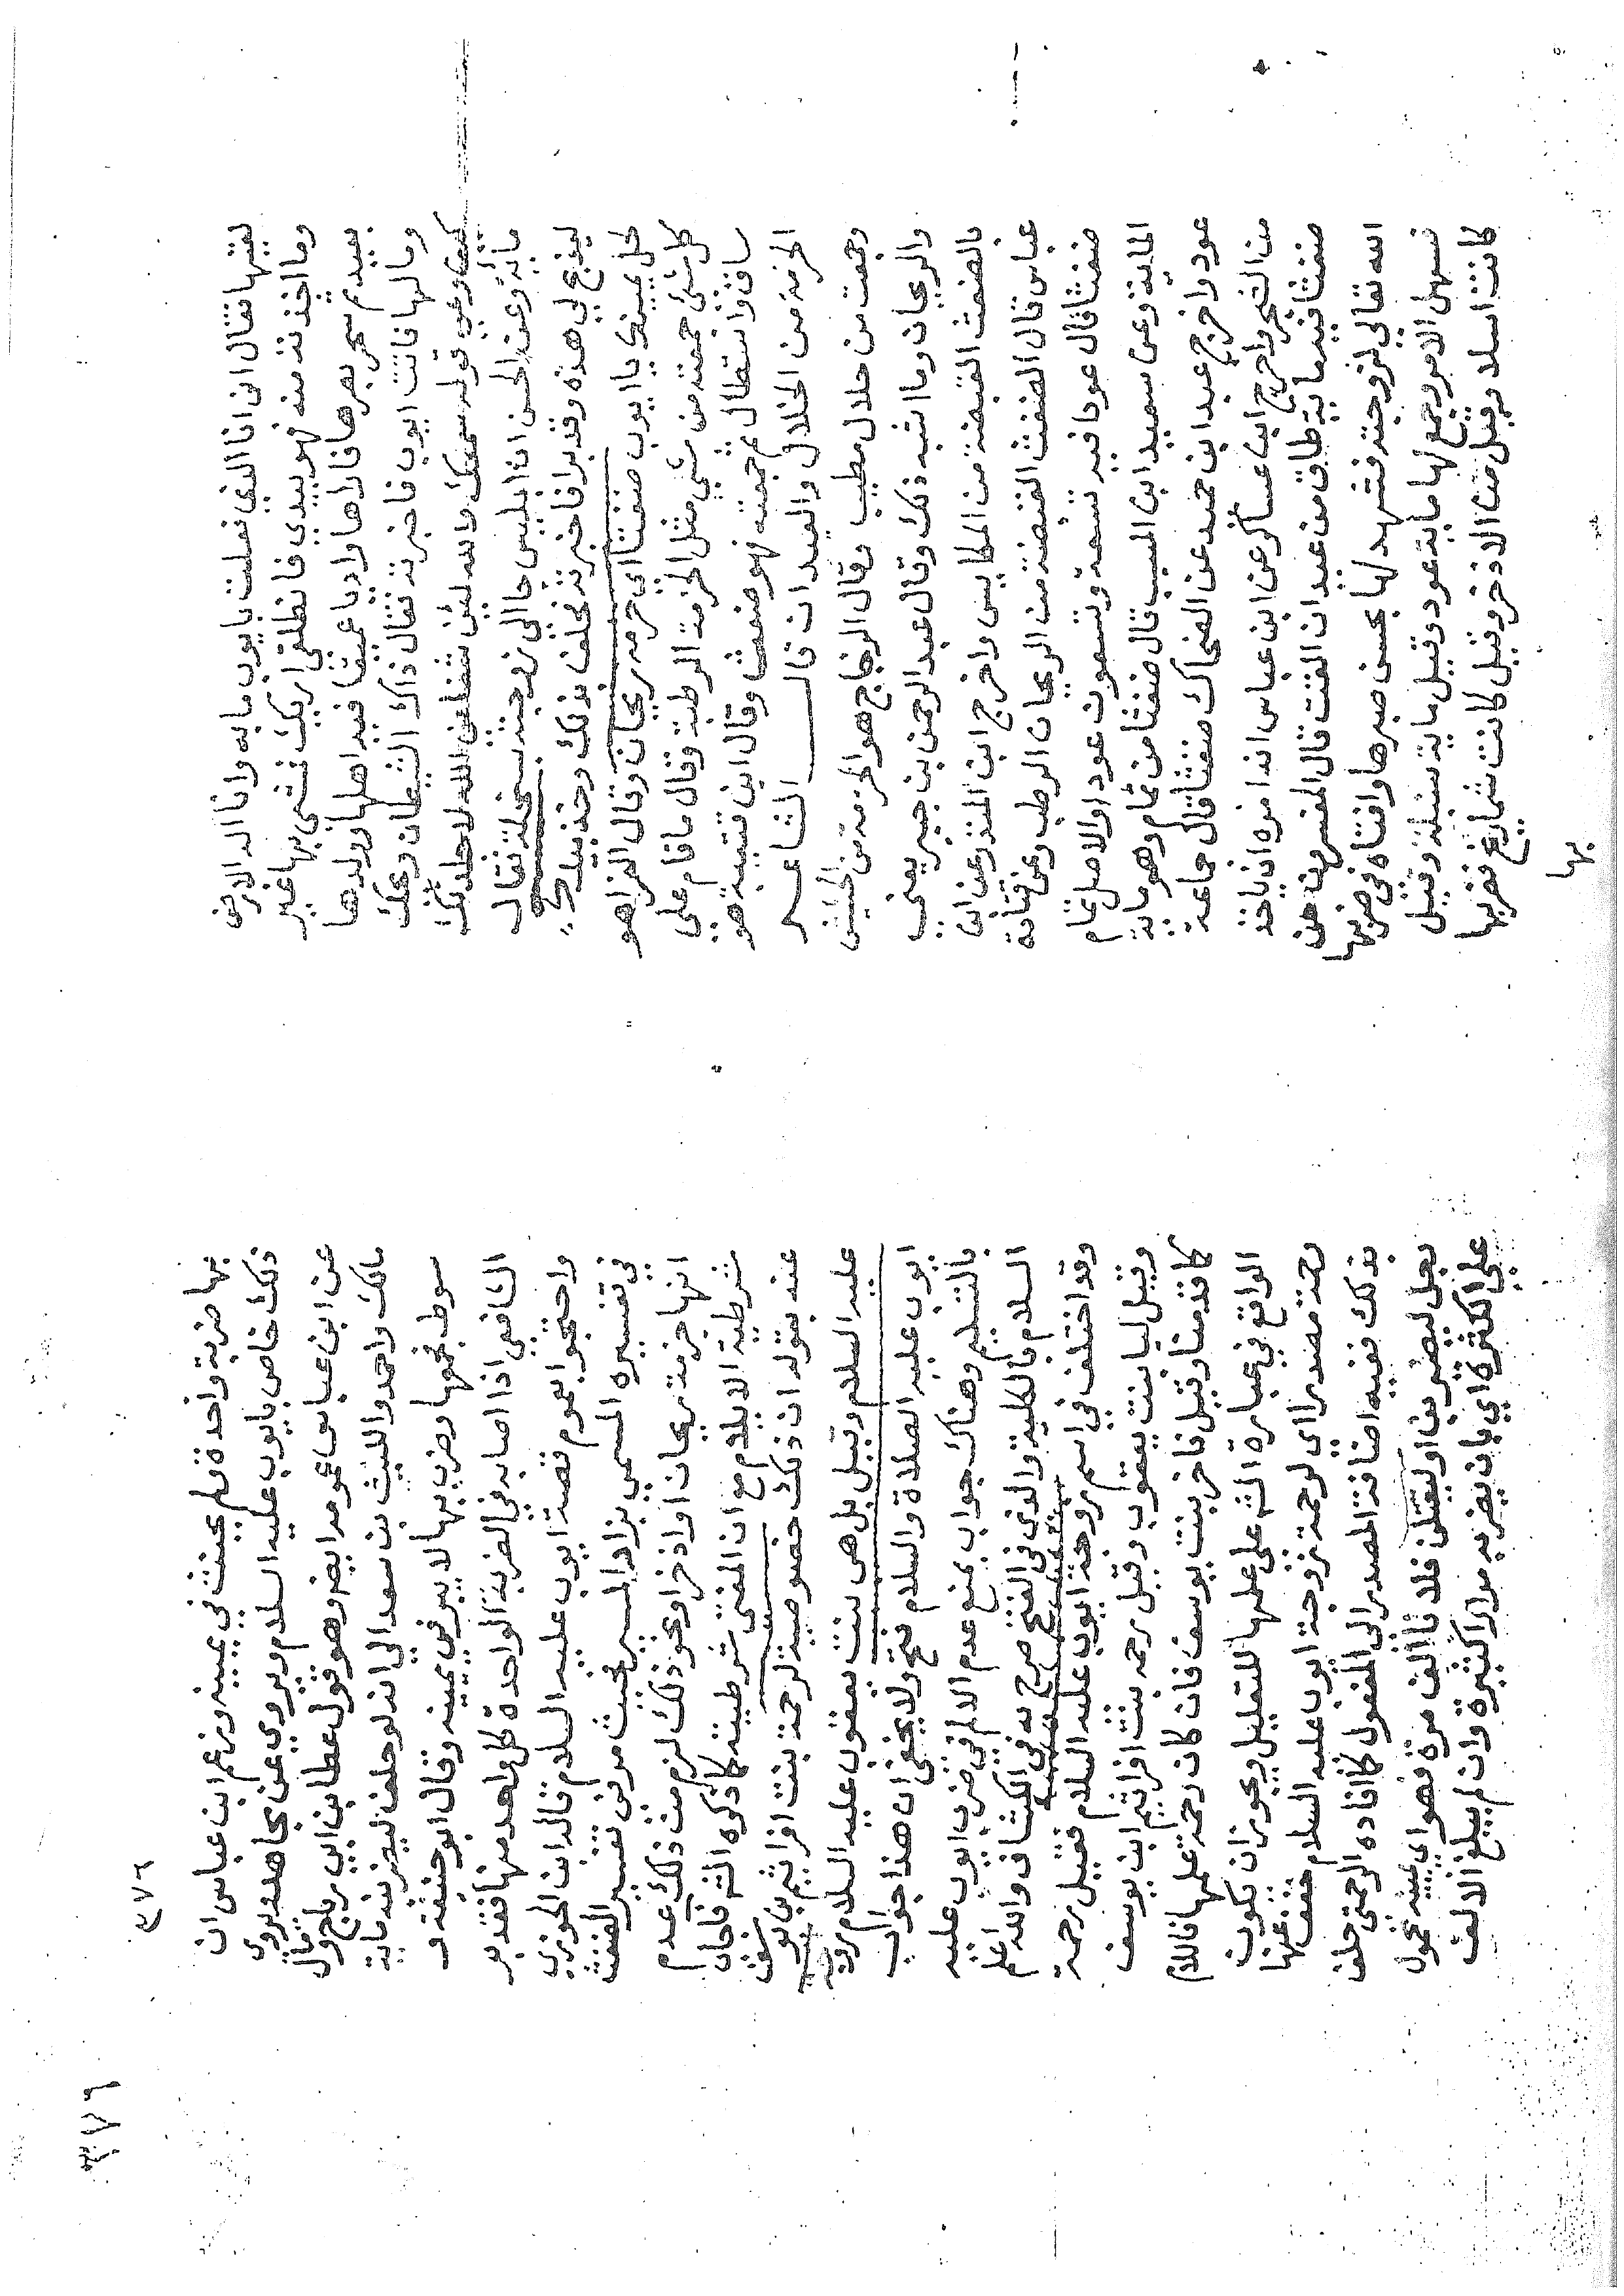 لقيها فقال اني انا الذي فعلت بايوب ما به وانا اله الارض
وما اخذته منه فهو بيدي فانطلقي اريك فمشى بها غير
بعيد ثم سحر بصرها فاراها واديا عميقا فيه اهلها وولدها
وما لها فاتت ايوب فاخبرته فقال ذاك الشيطان ويحك
كيف وعي قوله سمعك والله لئن شفاني الله لاجلدنك
مائة وعن الحسن ان ابليس جا الي زوجته بسخلة فقال
ليذبح لي هذه وقد برا فاخبرته فحلف بذلك وخذ بيدك
لحل يمينك يا ايوب ضغثا اي حزمة ريحان وقال الفرا هو
كل شي جمعته من شي مثل الحزمة الرطبة وقال ما قام علي
ساق واستطال ثم جمعته فهو ضغث وقال ابن قتيبة هو
الحزمة من الخلال والعيدان قال الشاعر
وجمعت من خلال مطيب وقال الزجاج هو الحزمة من الحشيش
والريحان وما اشبه ذلك وقال عبد الرحمن بن جبير يعني
بالضغث القبضة من المكانيس واخرج ابن المنذر عن ابن
عباس قال الضغث القبضة من الريحان الرطب وعن قتادة
ضغثا قال عودا فيه تسعة وتسعون عودا والاصل تمام
المائة وعن سعيد ابن المسيب قال ضغثا من ثمام وهو مائة
عود واخرج عبد ابن حميد عن الضحاك ضغثا قال جماعة
من الشجر واخرج ابن عساكر عن ابن عباس انه امره ان ياخذ
ضغثا فيه مائة طاق من عيدان القت قال المفسرون من
الله تعالي لزوجته فشهد لها بحسن صبرها وافتاه في ضربها
تسهيل الامر وجمع لها مائة عود وقيل مائة سنبلة وقيل
كانت اسلا وقيل من الاذخر وقيل كانت شماريخ فضربها
بها
٣٧٦
٣٧٦
بها ضربة واحدة ولم يحنث في يمينه وزعم ابن عباس ان
ذلك خاص بايوب عليه السلام ويروي عن مجاهد ويروى
عن ابن عباس عمومه ايضا وهو قول عطا بن ابي رباح وقال
مالك واحمد والليث بن سعد الي انه لو حلف ليضربنه مائة
سوط فجمعها وضرب بها لا يبر في يمينه وقال ابو حنيفة و
الشافعي اذا اصابه في الضربة الواحدة كل واحد منها فقد بر
واحتجوا بعموم قصة ايوب عليه السلام قاله ابن الجوزي
في تفسيره المسمي بزاد المسير فحيث مر في تفسير الضغث
انها حزمة ريحان او اذخر او نحو ذلك لزم من ذلك عدم
شرطية الايلام مع ان المفتي شرطيته كما ذكره الش فاجاب
عنه بقوله ان ذلك خصوصية لرحمة بنت افراثيم بن يوسف
عليه السلام وقيل بل هي بنت يعقوب عليه السلام زوجة
ايوب عليه الصلاة والسلام فتح ولا يخفى ان هذا جواب
بالتسليم وهناك جواب بمنع عدم الالم في ضرب ايوب عليه
السلام بالكلية والذي في الفتح صرح به في الكشاف والله اعلم
وقد اختلف في اسم زوجة ايوب عليه السلام فقيل رحمة
وقيل ليا بنت يعقوب وقيل رحمة بنت افراثيم ابن يوسف
كما قدمنا وقيل ماخر بنت يوسف فان كان رحمة علمها فاللام
الواقع في عبارة الش على علمها للتعليل ويجوز ان يكون
رحمة مصدرا اي لرحمة زوجة ايوب عليه السلام خفف عنها
بذلك ففيه اضافة المصدر الى المفعول كما افاده الرحمتي حلف
رجل ليضربن او ليقتلن فلانا الف مرة فهو اي يمينه محمول
علي الكثرة اي بان يضربه مرارا كثيرة وان لم يبلغ الالف